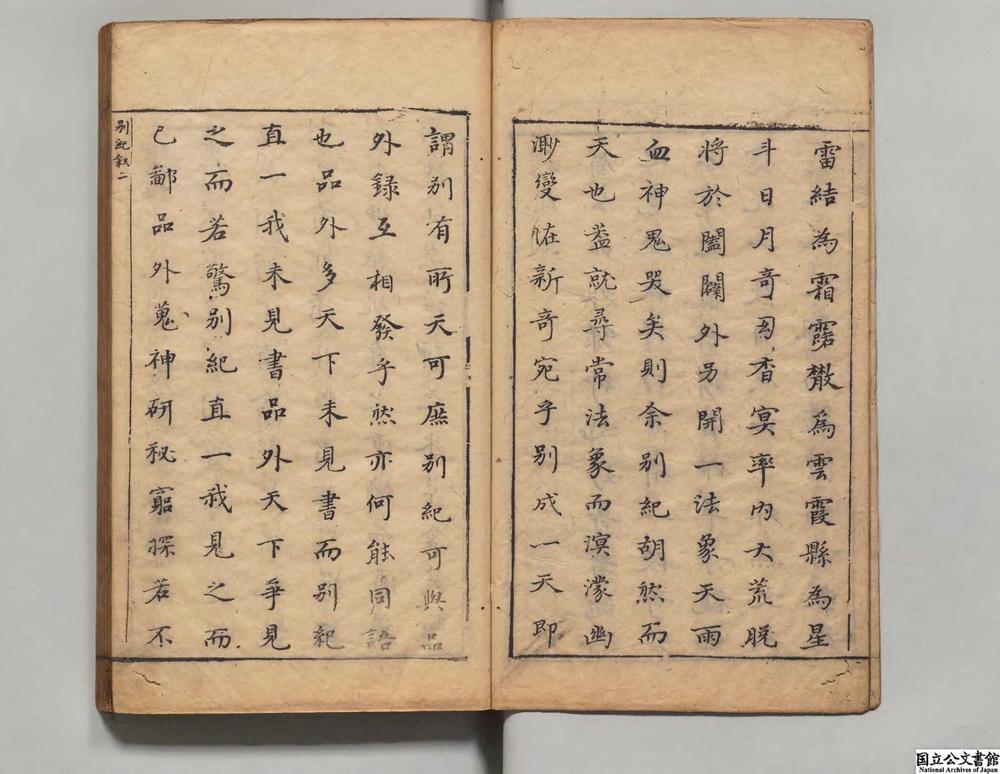 雷結為霜露散為雲霞縣為星
斗日月奇閟杳冥率內大荒脫
將於闔闢外另開一法象天雨
血神鬼哭矣則余別紀胡然而
天也葢就尋常法象而溟濛幽
渺變恠新奇宛乎別成一天即
謂別有所天可庶別紀可與品
外録互相發乎然亦何能同語
也品外多天下未見書而別紀
直一我未見書品外天下爭見
之而若驚別紀直一我見之而
已鄙品外蒐神研秘窮探若不
別紀敘二
国立公文書館
National Archives of Japan